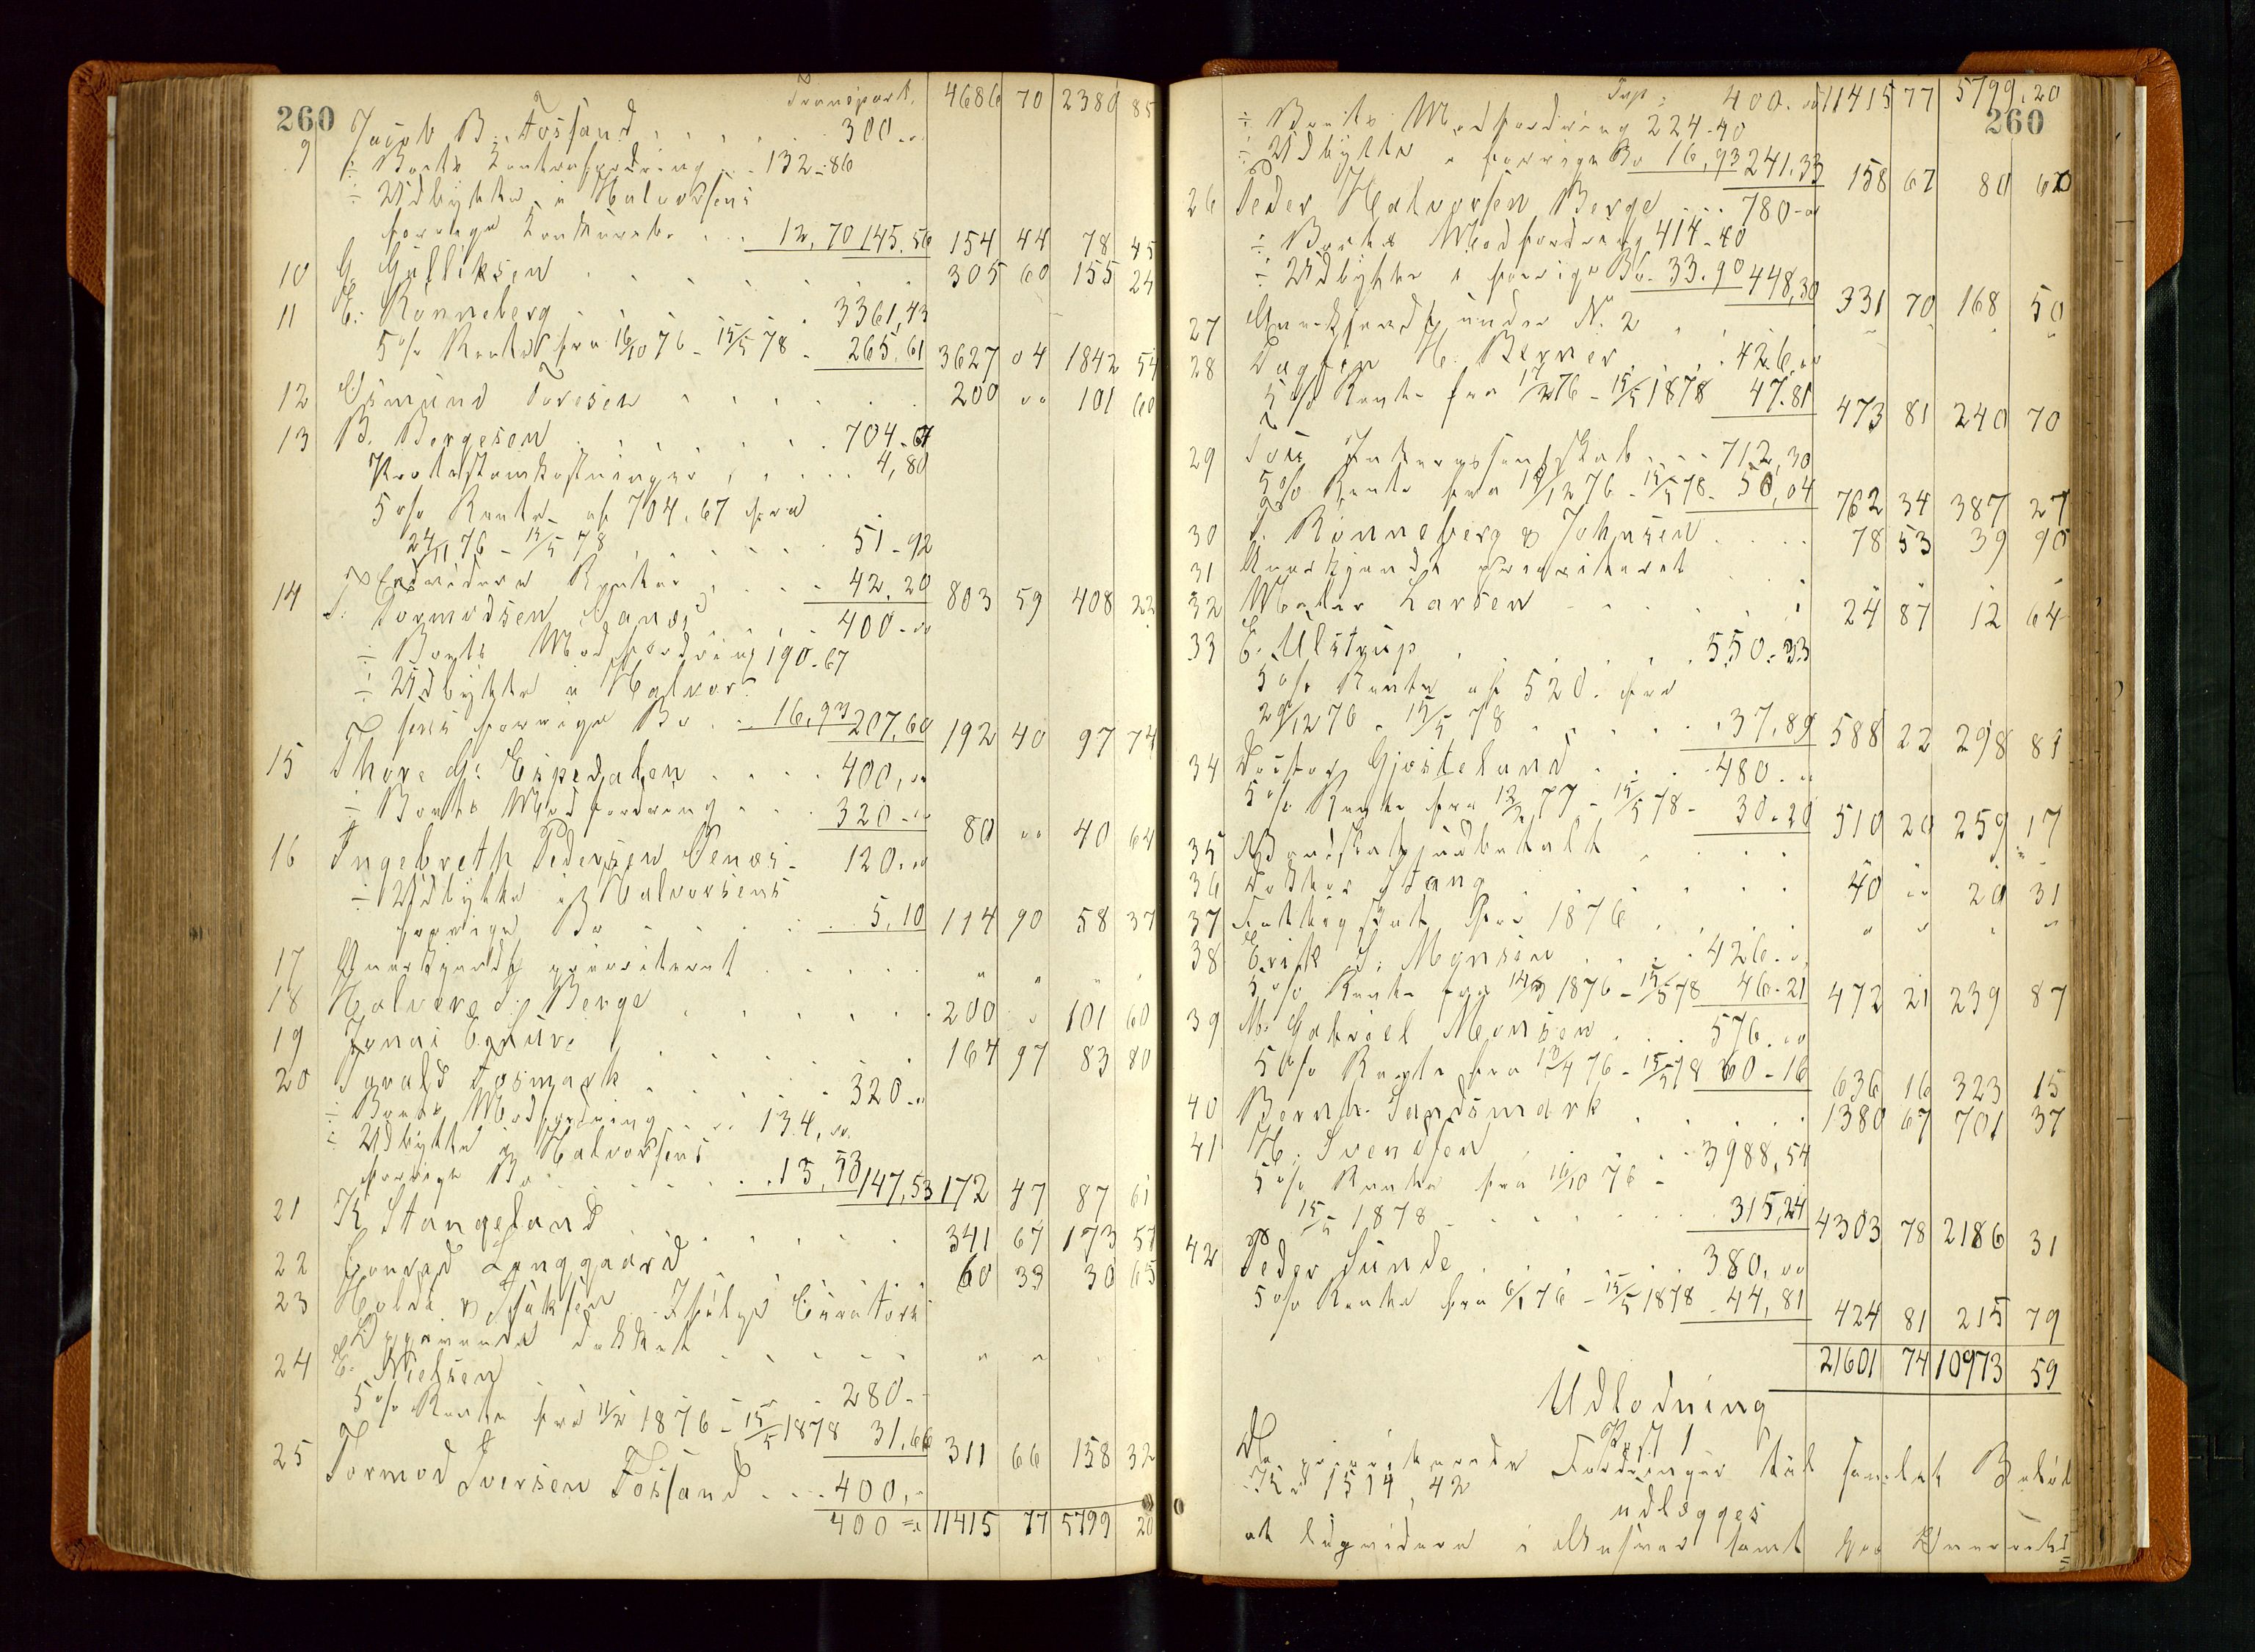 260
Transport. 4686 70 2380 85
9 Jacob B. Fosland 300 "
÷ Boets Contrafordring 132-86
÷ Udbytte i Halvorsens
forrige Concursbo 12,70 145.56 154 44 78 45
10 G. Gulliksen 305 60 155 24
11 C. Rønneberg 3361,43
5% Renter fra 16/10 76 - 15/5 78 - 265,61 3627 04 1842 54
12 Osmund Toresen 200 " 101 60
13 B. Bergesen 704-67
Protestomkostninger 4,80
5% Rente af 704.67 fra
24/11 76 - 15/5 78 51-92
Endvidere Renter 42,20 803 59 408 22
14 T. Tormodsen Sanæs 400-"
÷ Boets Modfordring 190-67
÷ Udbytte i Halvor-
sens forrige Bo 16,93 207,60 192 40 97 74
15 Thore G. Espedalen 400,"
÷ Boets Modfordring 320-" 80 " 40 64
16 Ingebreth Pedersen Senæs 120."
÷ Udbytte i Halvorsens
forrige Bo 5,10 114 90 58 37
17 Anerkjendt prioriteret " " " "
18 Halvor S. Berge 200 " 101 60
19 Jonas 164 97 83 80
20 Tarald Fosmark 320-"
÷ Boets Modfordring 134,"
÷ Udbytte i Halvorsens
forrige Bo 13,53 147,53 172 47 87 61
21 K Stangeland 341 67 173 57
22 Conrad Langgaard 60 33 30 65
23 Holdt & Isaksen Ifølge Curators
Opgivende dækket " " "
24 E. Nielsen 280-
5% Rente fra 11/2 1876 - 15/5 1878 31,66 311 66 158 32
25 Tormod Iversen Fosland 400,-
400 = 11415 77 5799 20
260
Trsp: 400." 11415 77 5799.20
÷ Boets Modfordring 224-40
÷ Udbytte i forrige Bo 16,93 241.33 158 67 80 60
26 Peder Halvorsen Berge 780-"
÷ Boets Modfordring 414-40
÷ Udbytte i forrige Bo 33.90 448,30 331 70 168 50
27 Anerkjendt under N. 2 " " " "
28 Dagfin H. Berner 426,"
5% Rente fra 17/2 76 - 15/5 1878 47.81 473 81 240 70
29 Interessentskab 712,30
5% Rente fra 12/12 76 - 15/5 78 - 50,04 762 34 387 27
30 Rønneberg & Johnsen 78 53 39 90
31 Anerkjendt prioriteret " " " "
32 Maler Larsen 24 87 12 64
33 E. Ulstrup 550.33
5% Rente af 520. fra
29/12 76 - 15/5 78 37,89 588 22 298 81
34 Doctor Gjøsteland 480."
5% Rente fra 12/2 77 - 15/5 78 - 30.20 510 20 259 17
35 indbetalt " "
36 Doktor Stang 40 " 20 31
37 Fattigskat for 1876 " " " "
38 Erik S. Monsen 426."
5% Rente fra 14/3 1876 - 15/5 78 46-21 472 21 239 87
39 M. Gabriel Monsen 576."
5% Rente fra 13/4 76 - 15/5 78 60-16 636 16 323 15
40 Bernh. Sandsmark 1380 67 701 37
41 H. Svendsen 3988,54
5% Rente fra 16/10 76 -
15/5 1878 315,24 4303 78 2186 31
42 Peder Sunde 380,"
5% Rente fra 6/1 76 - 15/5 1878 - 44,81 424 81 215 79
21601 74 10973 59
Udlodning
Post 1
De prioriterede Fordringer til samlet Beløb
Kr 1514,42
udlægges
at liqvidere i Masser samt hos